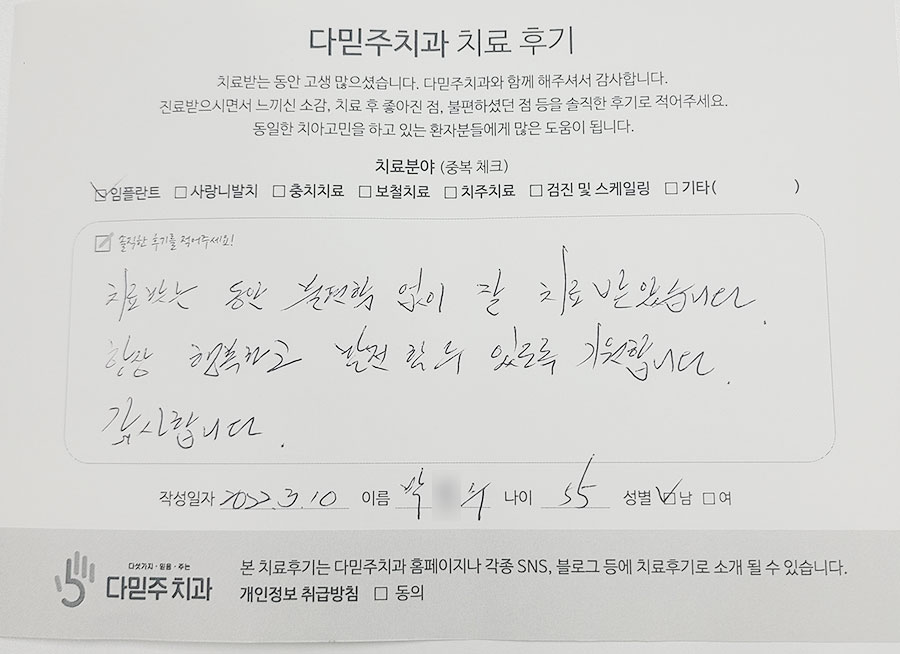 다믿주치과 치료 후기
치료받는 동안 고생 많으셨습니다. 다믿주치과와 함께 해주셔서 감사합니다.
진료받으시면서 느끼신 소감, 치료 후 좋아진 점, 불편하셨던 점 등을 솔직한 후기로 적어주세요.
동일한 치아고민을 하고 있는 환자분들에게 많은 도움이 됩니다.
치료분야 (중복 체크)
☑임플란트 ☐사랑니발치 ☐충치치료 ☐보철치료 ☐치주치료 ☐검진 및 스케일링 ☐기타( )
솔직한 후기를 적어주세요!
치료받는 동안 불편함 없이 잘 치료받았습니다.
항상 행복하고 발전 할 수 있도록 기원합니다.
감사합니다.
작성일자 2022.3.10 이름 박 수 나이 55 성별 ☑남 ☐여
다섯가지·믿음·주는
다믿주치과
본 치료후기는 다믿주치과 홈페이지나 각종 SNS, 블로그 등에 치료후기로 소개 될 수 있습니다.
개인정보 취급방침 ☐ 동의